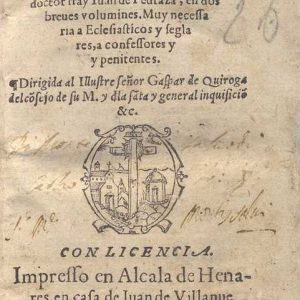 doctor fray Iuan de Pedraza, en dos
breues volumines. Muy necessa
ria a Eclesiasticos y segla
res, a confessores y
y penitentes.
¶Dirigida al Illustre señor Gaspar de Quiroga
del cõsejo de su M. y dla sãta y general inquisiciõ
&c.
CON LICENCIA.
Impresso en Alcala de Hena
res en casa de Iuan de Villanue